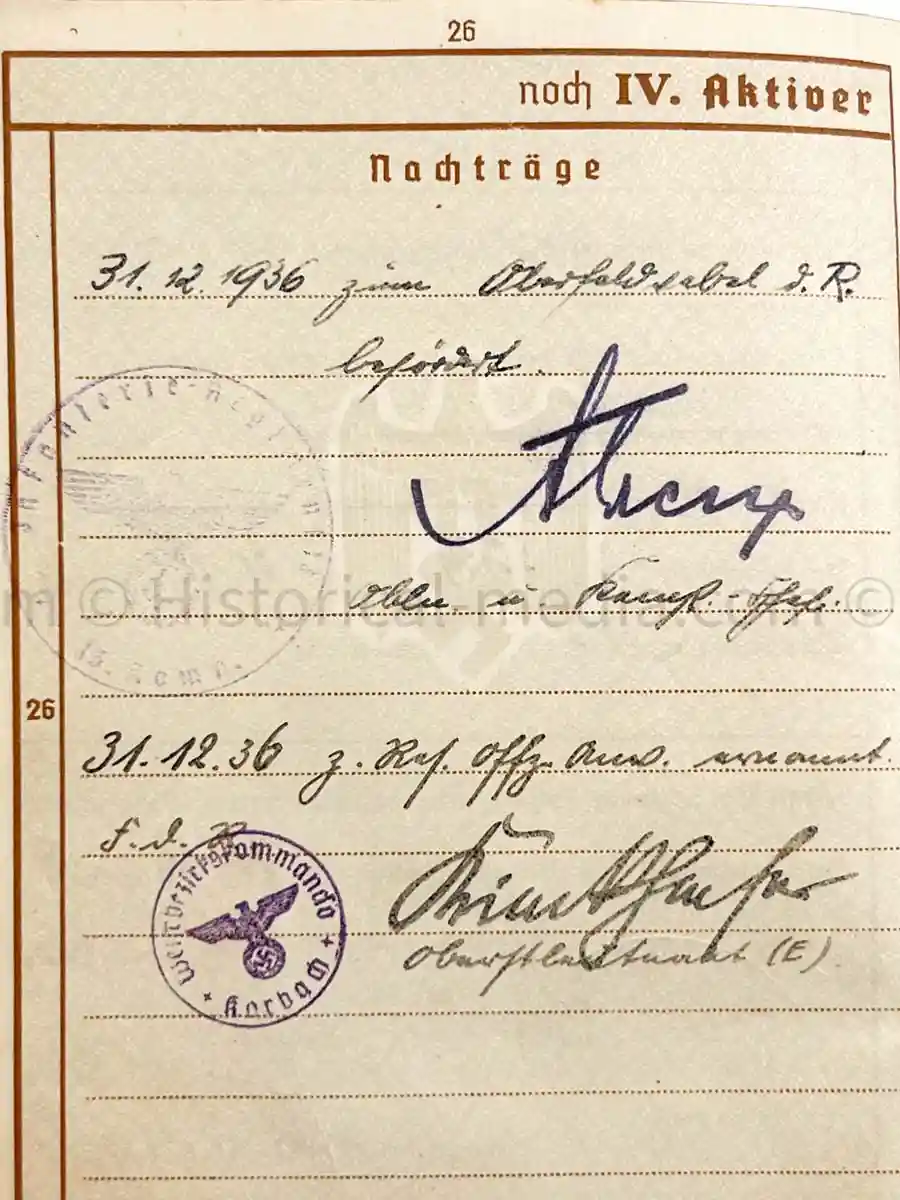 26
noch IV. Aktiver
Nachträge
31.12.1936 zum Oberfeldwebel d. R.
befördert.
Infanterie-Regiment
15. Komp.
Oblt. u. Komp.-Chef.
© Historical-media.com ©
26
31.12.36 z. Res. Offz. Anw. ernannt.
F. d. R.
Wehrbezirkskommando
Korbach
Oberstleutnant (E).